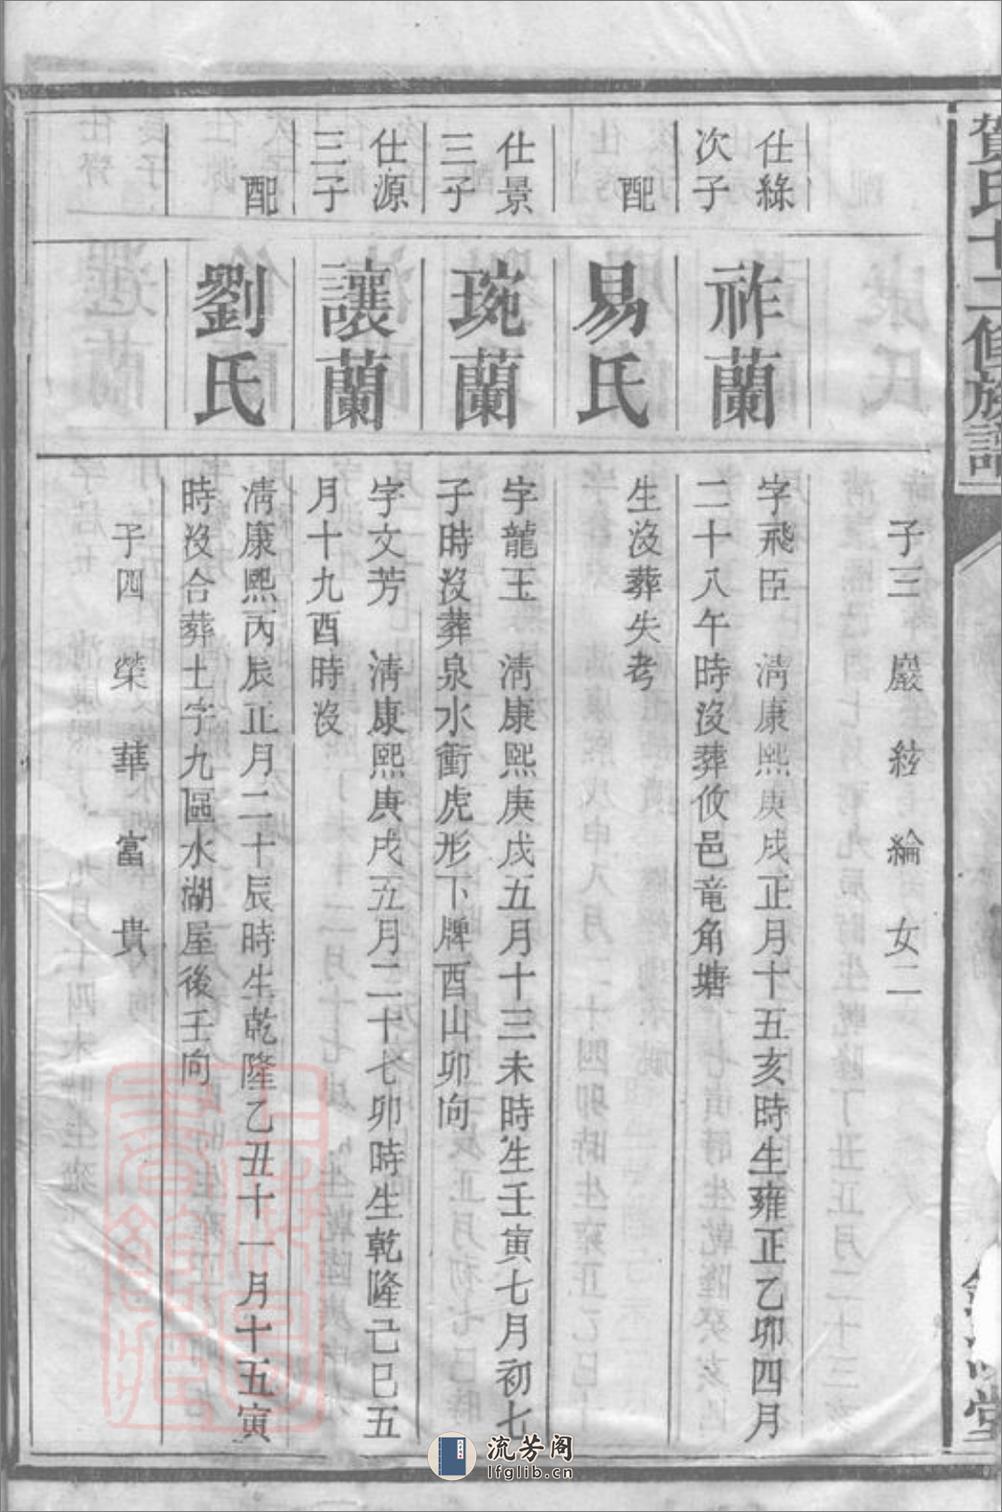 賀氏十二修族譜
子三 巖 紋 綸 女二
仕綠
次子
祚蘭
字飛臣 淸康熙庚戌正月十五亥時生雍正乙卯四月
二十八午時沒葬攸邑竜角塘
配
易氏
生沒葬失考
仕景
三子
琬蘭
字龍玉 淸康熙庚戌五月十三未時生壬寅七月初七
子時沒葬泉水衝虎形下牌酉山卯向
仕源
三子
讓蘭
字文芳 淸康熙庚戌五月二十七卯時生乾隆己巳五
月十九酉時沒
配
劉氏
淸康熙丙辰正月二十辰時生乾隆乙丑十一月十五寅
時沒合葬土字九區水湖屋後壬向
子四 榮 華 富 貴
流芳阁
lfglib.cn